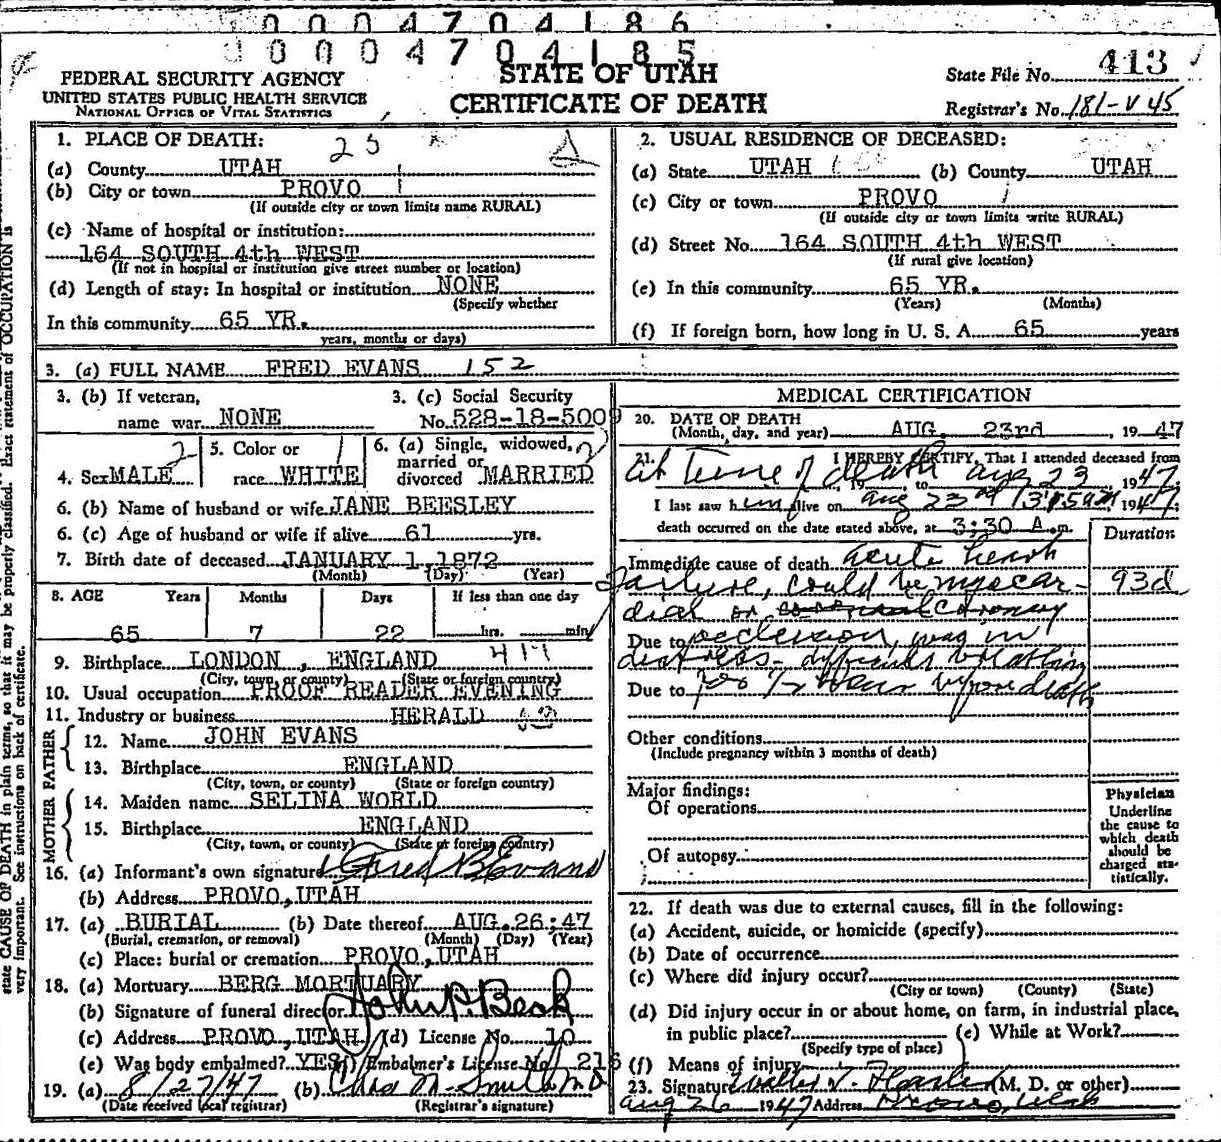 0004704186
0004704185
FEDERAL SECURITY AGENCY
UNITED STATES PUBLIC HEALTH SERVICE
NATIONAL OFFICE OF VITAL STATISTICS
STATE OF UTAH
CERTIFICATE OF DEATH
State File No. 413
Registrar's No. 181-V 45
1. PLACE OF DEATH:
(a) County UTAH
(b) City or town PROVO
(If outside city or town limits name RURAL)
(c) Name of hospital or institution:
164 SOUTH 4th WEST
(If not in hospital or institution give street number or location)
(d) Length of stay: In hospital or institution NONE
(Specify whether
In this community 65 YR.
years, months or days)
2. USUAL RESIDENCE OF DECEASED:
(a) State UTAH (b) County UTAH
(c) City or town PROVO
(If outside city or town limits write RURAL)
(d) Street No. 164 SOUTH 4th WEST
(If rural give location)
(e) In this community 65 YR.
(Years) (Months)
(f) If foreign born, how long in U. S. A. 65 years
3. (a) FULL NAME FRED EVANS 152
3. (b) If veteran,
name war NONE
3. (c) Social Security
No. 528-18-5009
4. Sex MALE 2
5. Color or
race WHITE 1
6. (a) Single, widowed, 2
married or
divorced MARRIED
6. (b) Name of husband or wife JANE BEESLEY
6. (c) Age of husband or wife if alive 61 yrs.
7. Birth date of deceased JANUARY 1, 1872
(Month) (Day) (Year)
8. AGE Years Months Days If less than one day
65 7 22 hrs. min.
9. Birthplace LONDON, ENGLAND
(City, town, or county) (State or foreign country)
10. Usual occupation PROOF READER EVENING
11. Industry or business HERALD
FATHER
12. Name JOHN EVANS
13. Birthplace ENGLAND
(City, town, or county) (State or foreign country)
MOTHER
14. Maiden name SELINA WORLD
15. Birthplace ENGLAND
(City, town, or county) (State or foreign country)
16. (a) Informant's own signature Fred B Evans
(b) Address PROVO, UTAH
17. (a) BURIAL (b) Date thereof AUG. 26; 47
(Burial, cremation, or removal) (Month) (Day) (Year)
(c) Place: burial or cremation PROVO, UTAH
18. (a) Mortuary BERG MORTUARY
(b) Signature of funeral director John P. Beck
(c) Address PROVO, UTAH (d) License No. 10
(e) Was body embalmed? YES Embalmer's License No. 216
19. (a) 8/27/47 (b) Chas M. Smith M D
(Date received local registrar) (Registrar's signature)
MEDICAL CERTIFICATION
20. DATE OF DEATH
(Month, day, and year) AUG. 23rd, 1947
21. I HEREBY CERTIFY, That I attended deceased from
at time of death, 19 , to Aug 23 1947,
I last saw him alive on Aug 23rd 1947;
death occurred on the date stated above, at 3:30 A.m.
Duration
Immediate cause of death acute heart
failure, could be myocar-
dial or coronary
93d
Due to occlusion, was in
distress - difficult breathing
Due to for 1/2 hour before death
Other conditions
(Include pregnancy within 3 months of death)
Major findings:
Of operations
Of autopsy
Physician
Underline
the cause to
which death
should be
charged sta-
tistically.
22. If death was due to external causes, fill in the following:
(a) Accident, suicide, or homicide (specify)
(b) Date of occurrence
(c) Where did injury occur?
(City or town) (County) (State)
(d) Did injury occur in or about home, on farm, in industrial place,
in public place? (e) While at Work?
(Specify type of place)
(f) Means of injury
23. Signature (M. D. or other)
Aug 26 1947 Address Provo, Utah
state CAUSE OF DEATH in plain terms, so that it may be properly classified. Exact statement of OCCUPATION is
very important. See instructions on back of certificate.